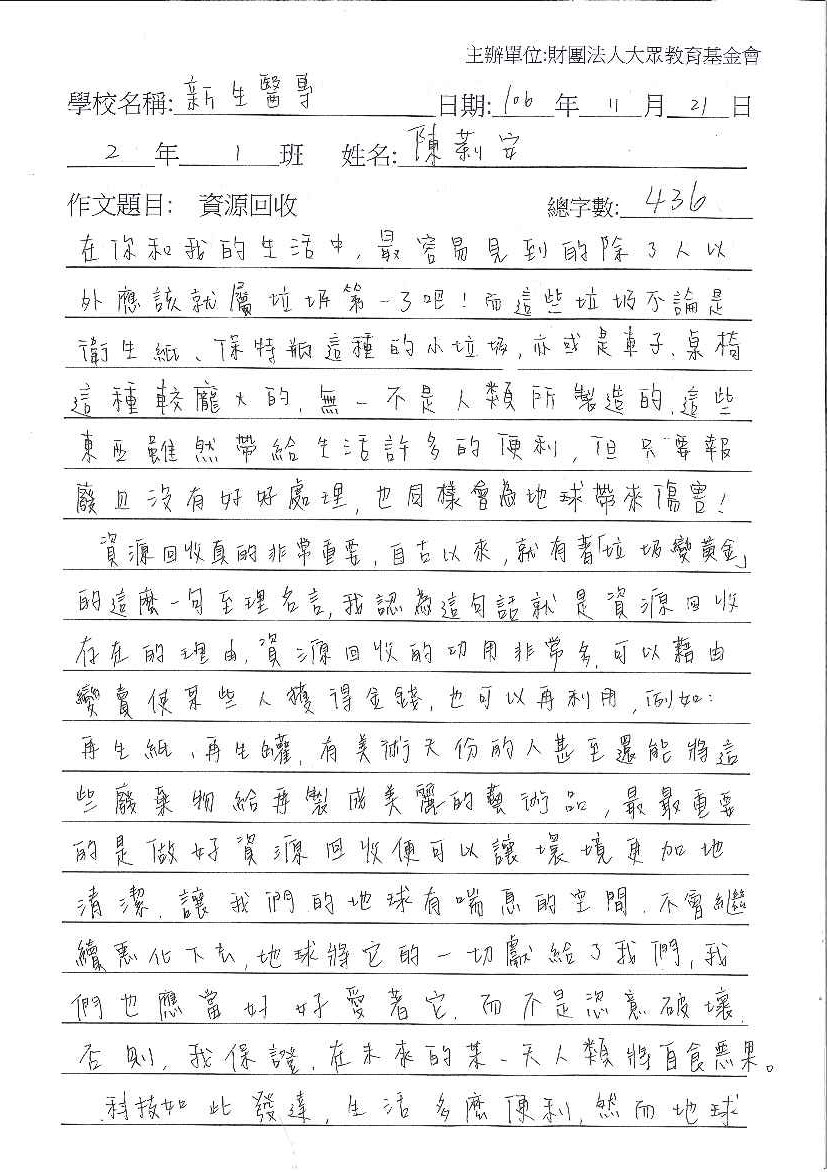 主辦單位:財團法人大眾教育基金會
學校名稱:新生醫專 日期:106年11月21日
2年1班 姓名:陳莉安
作文題目: 資源回收 總字數:436
在你和我的生活中,最容易見到的除了人以
外應該就屬垃圾第一了吧!而這些垃圾不論是
衛生紙、保特瓶這種的小垃圾,亦或是車子、桌椅
這種較龐大的,無一不是人類所製造的,這些
東西雖然帶給生活許多的便利,但只要報
廢且沒有好好處理,也同樣會為地球帶來傷害!
資源回收真的非常重要,自古以來,就有著「垃圾變黃金」
的這麼一句至理名言,我認為這句話就是資源回收
存在的理由,資源回收的功用非常多,可以藉由
變賣使某些人獲得金錢,也可以再利用,例如:
再生紙、再生罐,有美術天份的人甚至還能將這
些廢棄物給再製成美麗的藝術品,最最重要
的是做好資源回收便可以讓環境更加地
清潔,讓我們的地球有喘息的空間,不會繼
續惡化下去,地球將它的一切獻給了我們,我
們也應當好好愛著它,而不是恣意破壞,
否則,我保證,在未來的某一天人類將自食惡果。
科技如此發達,生活多麼便利,然而地球